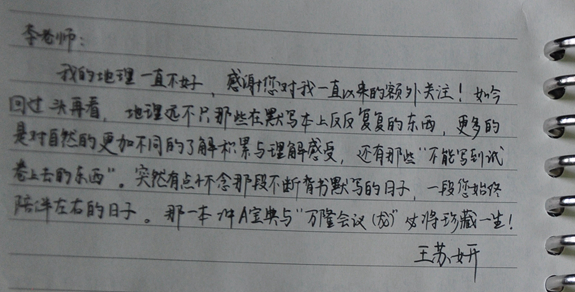 李老师：
我的地理一直不好，感谢您对我一直以来的额外关注！如今
回过头再看，地理远不只那些在默写本上反反复复的东西，更多的
是对自然的更加不同的了解积累与理解感受，还有那些“不能写到试
卷上去的东西”。突然有点怀念那段不断背书默写的日子，一段您始终
陪伴左右的日子。那一本冲A宝典与“万隆会议（ ）”必将珍藏一生！
王苏妍